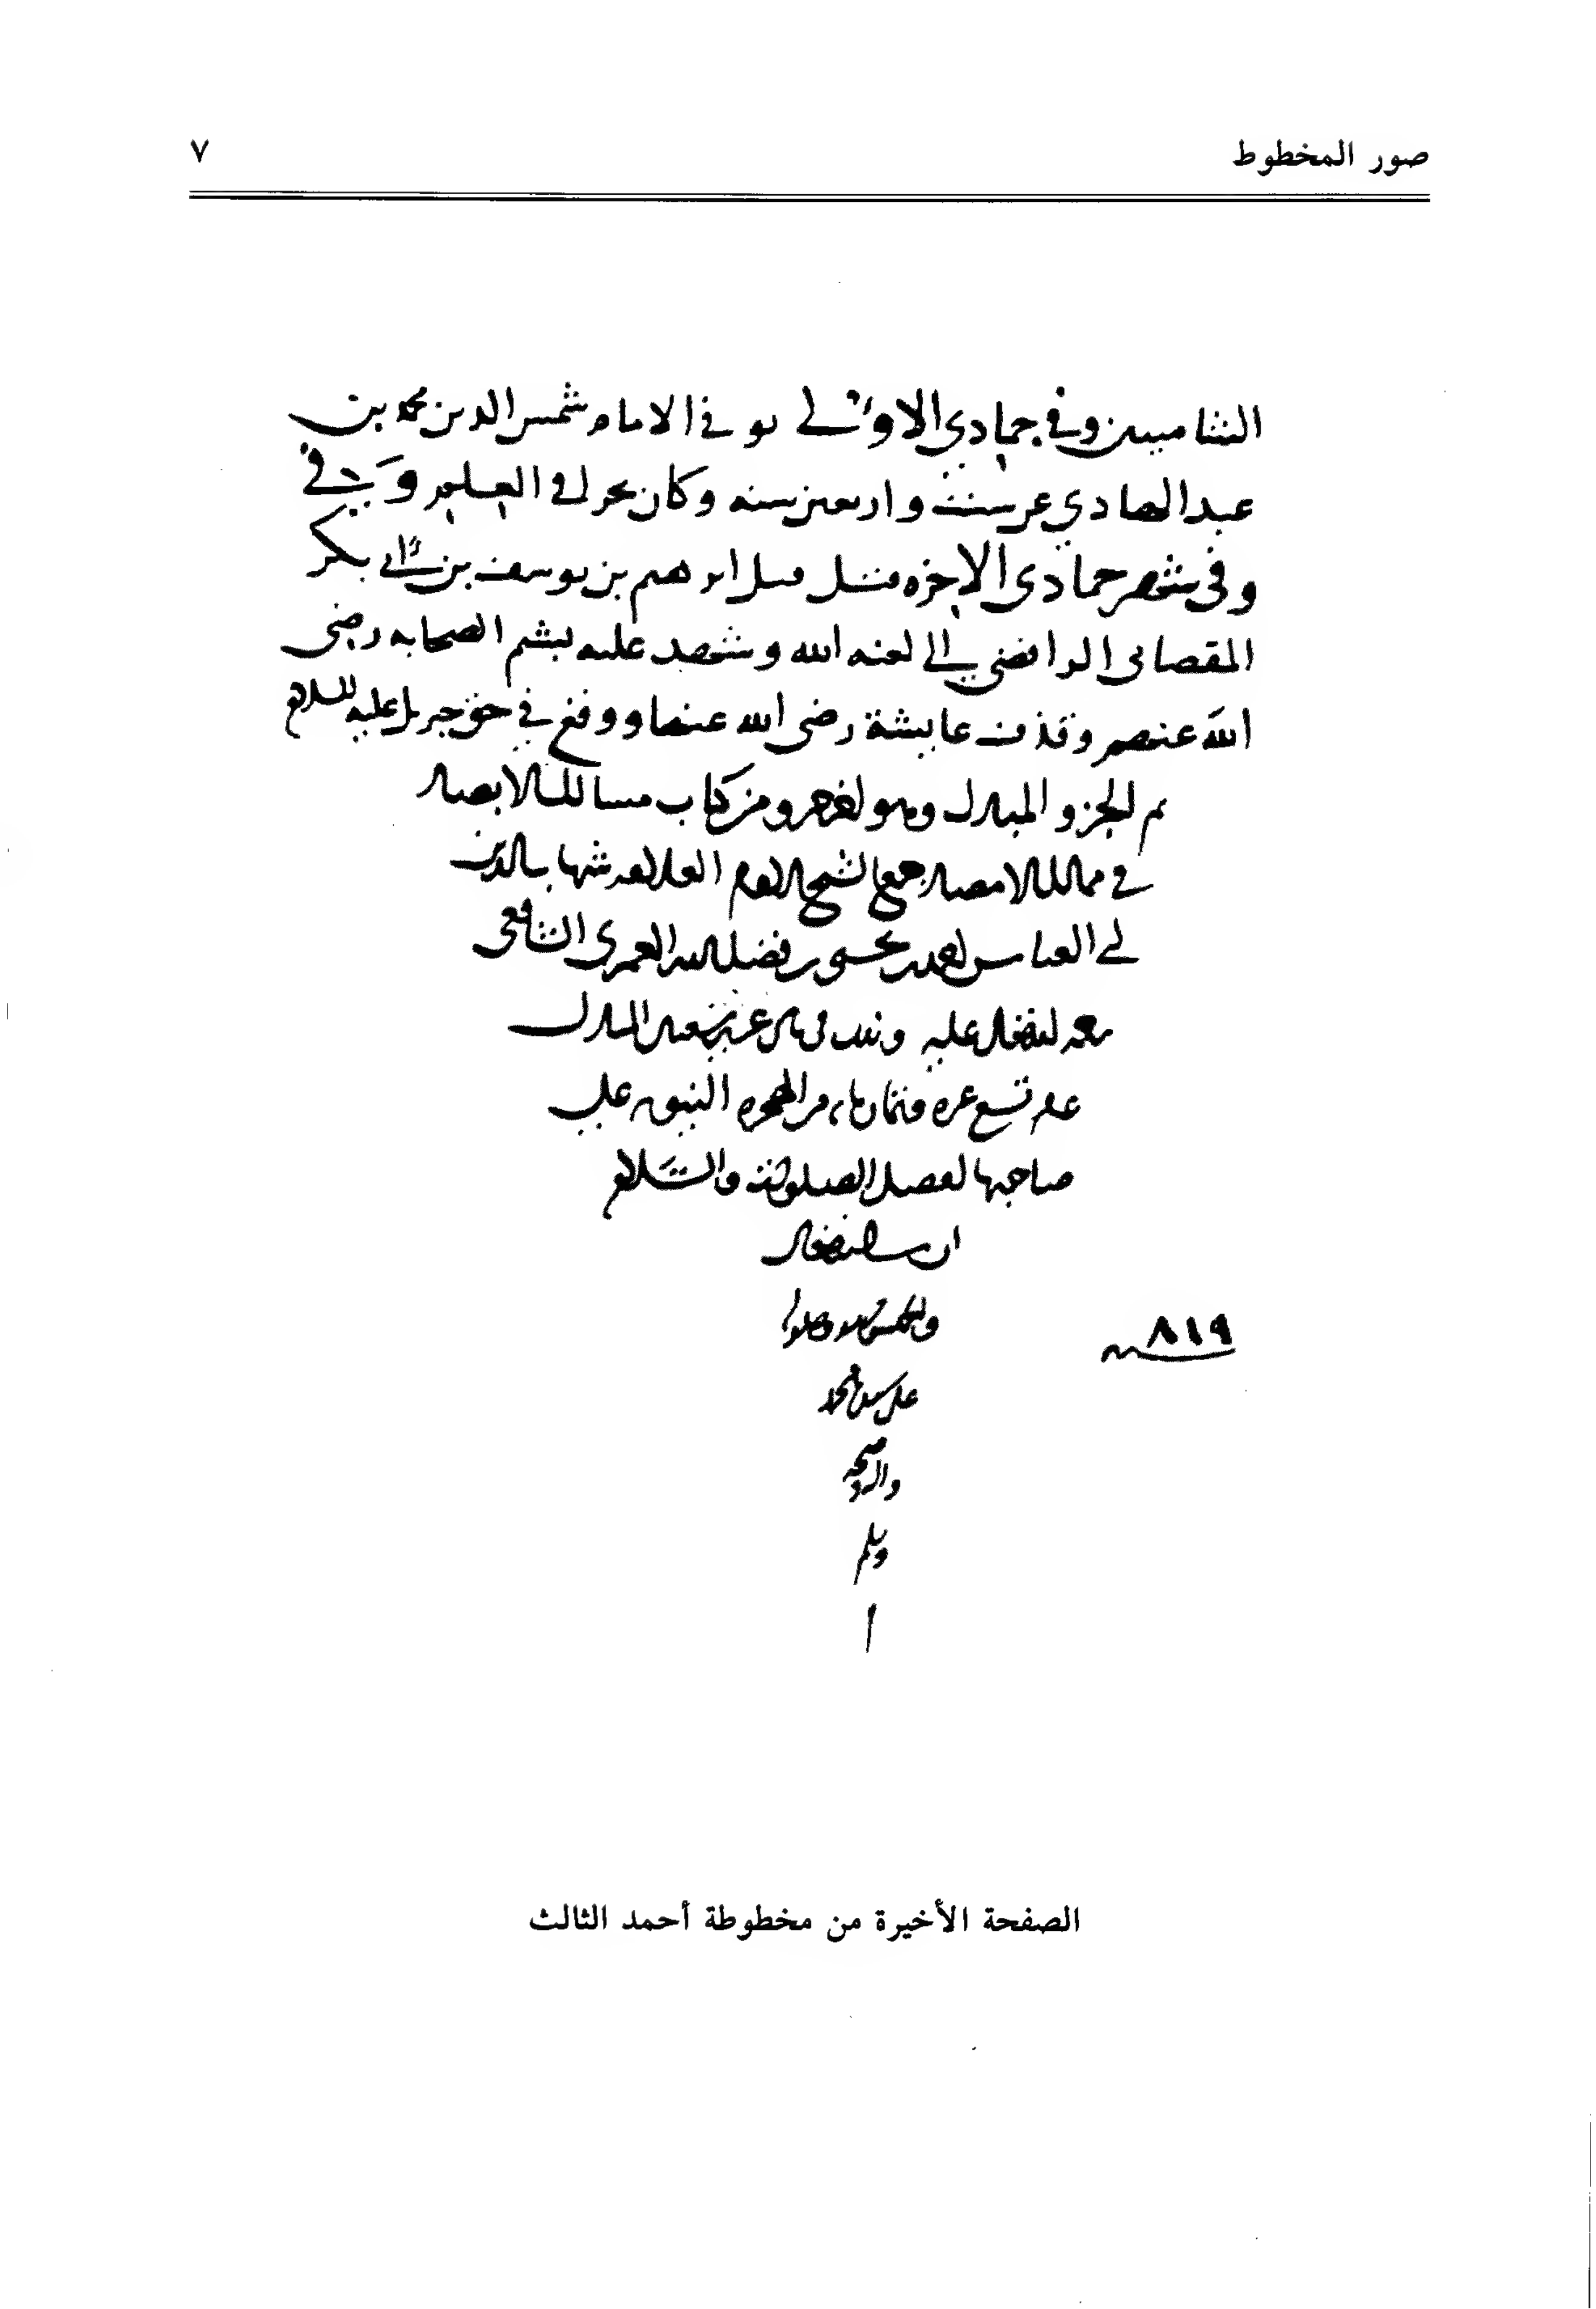 صور المخطوط
٧
الشاميين وفي جمادي الاولى توفي الامام شمس الدين محمد بن
عبد الهادي عن ست واربعين سنه وكان بحرا في العلم و في
وفي شهر جمادى الاخره قتل ابرهيم بن يوسف بن ابي بكر
المقصاتي الرافضي الى لعنه الله وشهد عليه بشتم الصحابه رضى
الله عنهم وقذف عايشة رضى الله عنها ووقع في حق جبريل عليه السلام
تم الجزو المبارك وهو اخر من كتاب مسالك الابصار
في ممالك الامصار جمع الشيخ الامام العلامه شهاب الدين
ابي العباس احمد بن يحيى بن فضل الله العمري الشافعي
رحمه الله تعالى عليه وذلك في شعبان المبارك
عام تسع عشره وثمان مايه من الهجره النبويه على
صاحبها افضل الصلوة والسلام
ان شا الله تعالى
والحمد لله وصلواته
على سيدنا محمد
واله وصحبه
وسلم
٨١٩
الصفحة الأخيرة من مخطوطة أحمد الثالث